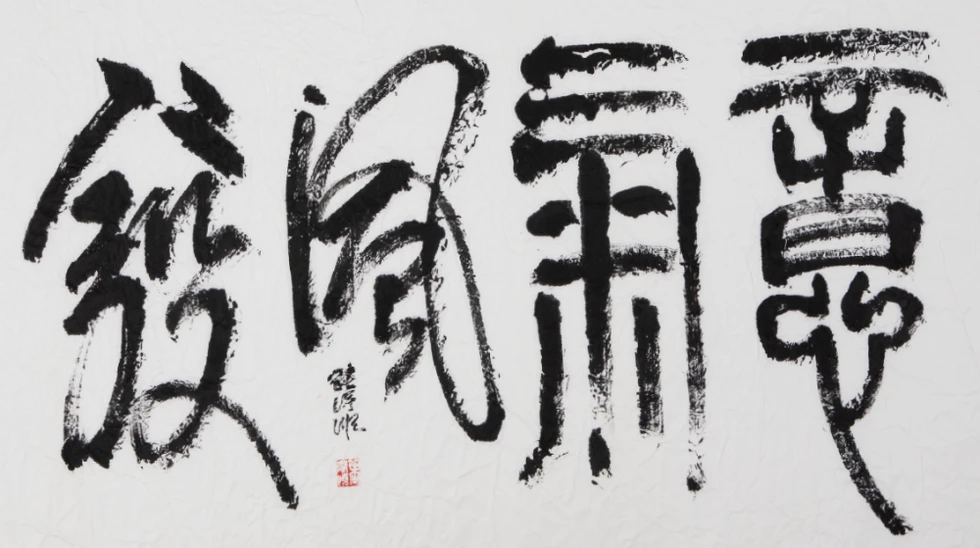 意氣風發